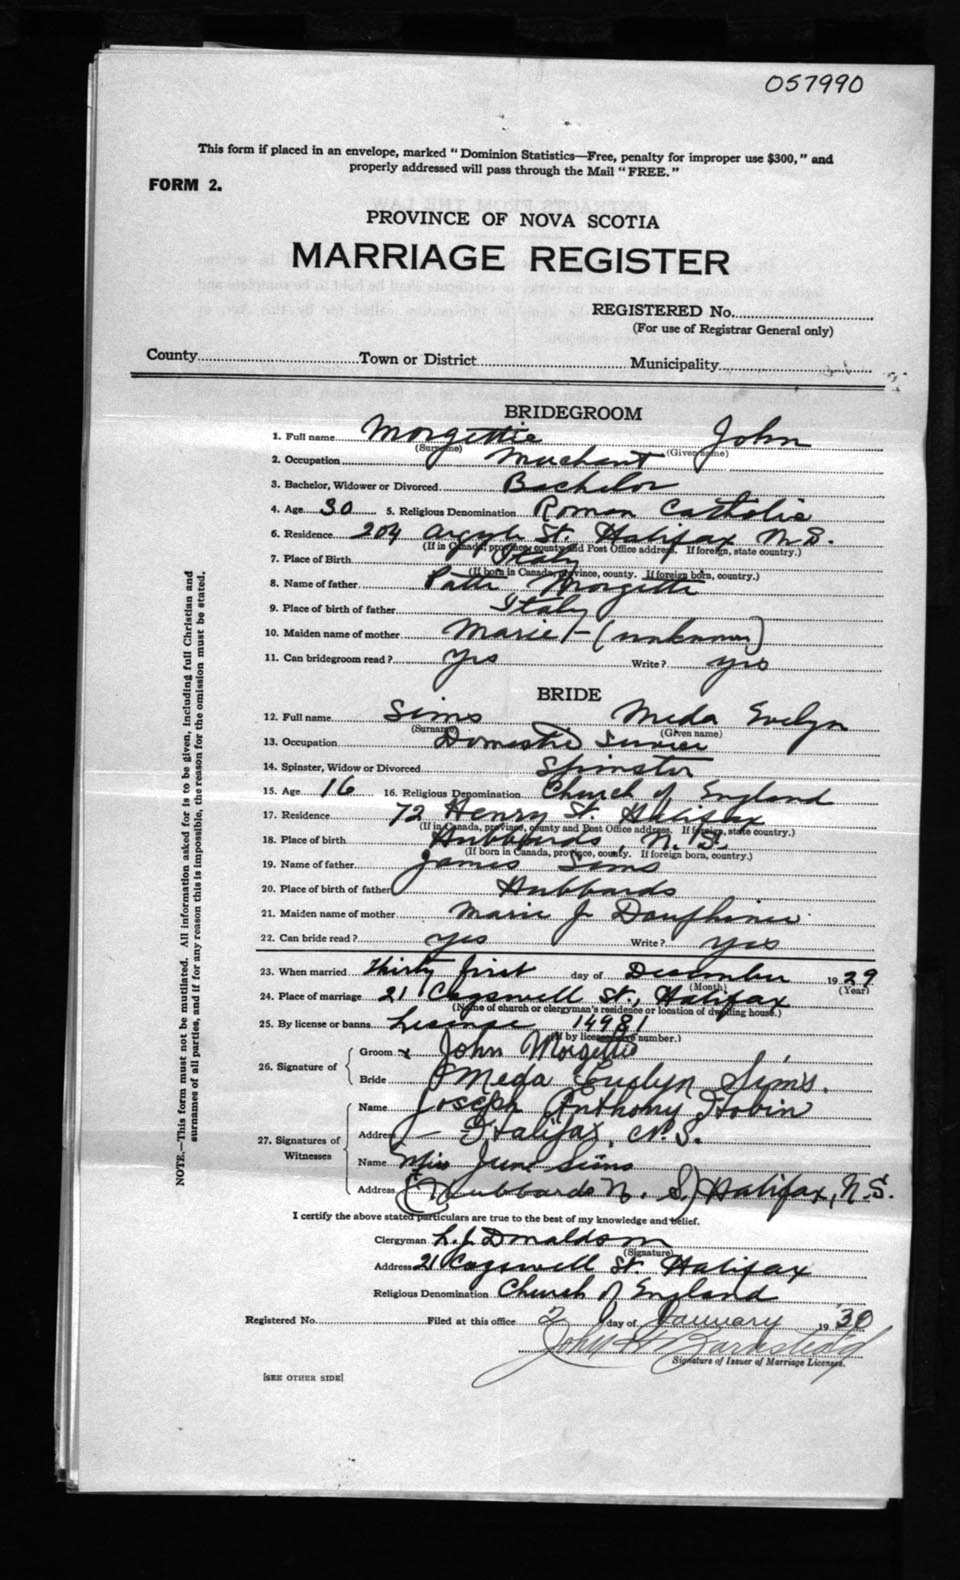 057990
This form if placed in an envelope, marked "Dominion Statistics—Free, penalty for improper use $300," and
properly addressed will pass through the Mail "FREE."
FORM 2.
PROVINCE OF NOVA SCOTIA
MARRIAGE REGISTER
REGISTERED No.
(For use of Registrar General only)
County Town or District Municipality
BRIDEGROOM
1. Full name Morgettie John
(Surname) (Given name)
2. Occupation Merchant
3. Bachelor, Widower or Divorced Bachelor
4. Age 30 5. Religious Denomination Roman Catholic
6. Residence 204 Argyle St. Halifax N.S.
(If in Canada, province, county and Post Office address. If foreign, state country.)
7. Place of Birth Italy
(If born in Canada, province, county. If foreign born, country.)
8. Name of father Morgettie
9. Place of birth of father Italy
10. Maiden name of mother Marie - (unknown)
11. Can bridegroom read? yes Write? yes
BRIDE
12. Full name Sims Meda Evelyn
(Surname) (Given name)
13. Occupation Domestic Service
14. Spinster, Widow or Divorced Spinster
15. Age 16 16. Religious Denomination Church of England
17. Residence 72 Henry St. Halifax
(If in Canada, province, county and Post Office address. If foreign, state country.)
18. Place of birth Hubbards, N.S.
(If born in Canada, province, county. If foreign born, country.)
19. Name of father James Sims
20. Place of birth of father Hubbards
21. Maiden name of mother Marie J. Dauphinee
22. Can bride read? yes Write? yes
23. When married thirty first day of December 1929
(Month) (Year)
24. Place of marriage 21 Cogswell St., Halifax
(Name of church or clergyman's residence or location of dwelling house.)
25. By license or banns License 14981
(If by license give number.)
26. Signature of
Groom x John Morgettie
Bride Meda Evelyn Sims.
27. Signatures of
Witnesses
Name Joseph Anthony Hobin
Address — Halifax, N.S.
Name Miss June Sims
Address (Hubbards N. S.) Halifax, N.S.
I certify the above stated particulars are true to the best of my knowledge and belief.
Clergyman L. J. Donaldson
(Signature)
Address 21 Cogswell St. Halifax
Religious Denomination Church of England
Registered No. Filed at this office 2 day of January 1930
John H. Barnstead
Signature of Issuer of Marriage Licenses.
[SEE OTHER SIDE]
NOTE.—This form must not be mutilated. All information asked for is to be given, including full Christian and
surnames of all parties, and if for any reason this is impossible, the reason for the omission must be stated.